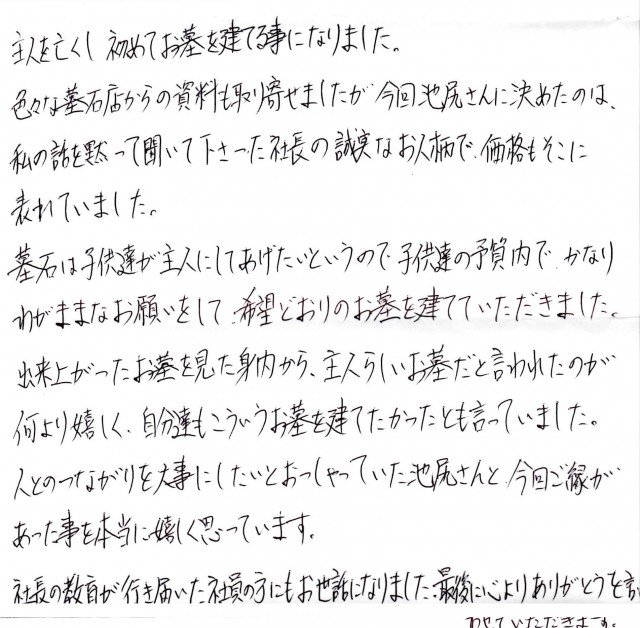 主人を亡くし 初めてお墓を建てる事になりました。
色々な墓石店からの資料も取り寄せましたが 今回池尻さんに決めたのは、
私の話を黙って聞いて下さった社長の誠実なお人柄で、価格もそこに
表れていました。
墓石は子供達が主人にしてあげたいというので 子供達の予算内で、かなり
わがままなお願いをして、希望どおりのお墓を建てていただきました。
出来上がったお墓を見た身内から、主人らしいお墓だと言われたのが
何より嬉しく、自分達もこういうお墓を建てたかったとも言っていました。
人とのつながりを大事にしたいとおっしゃっていた池尻さんと、今回ご縁が
あった事を本当に嬉しく思っています。
社長の教育が行き届いた社員の方にもお世話になりました。最後に心よりありがとうを言
わせていただきます。